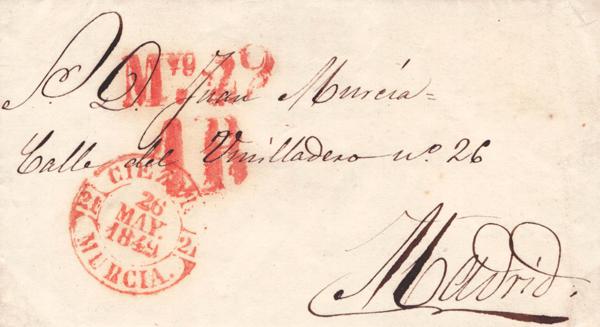 Sr. D. Juan Murcia=
Calle del Vmilladero nº. 26
Madrid.
AR
CIEZA.
26
MAY
1849
21
21
MURCIA.